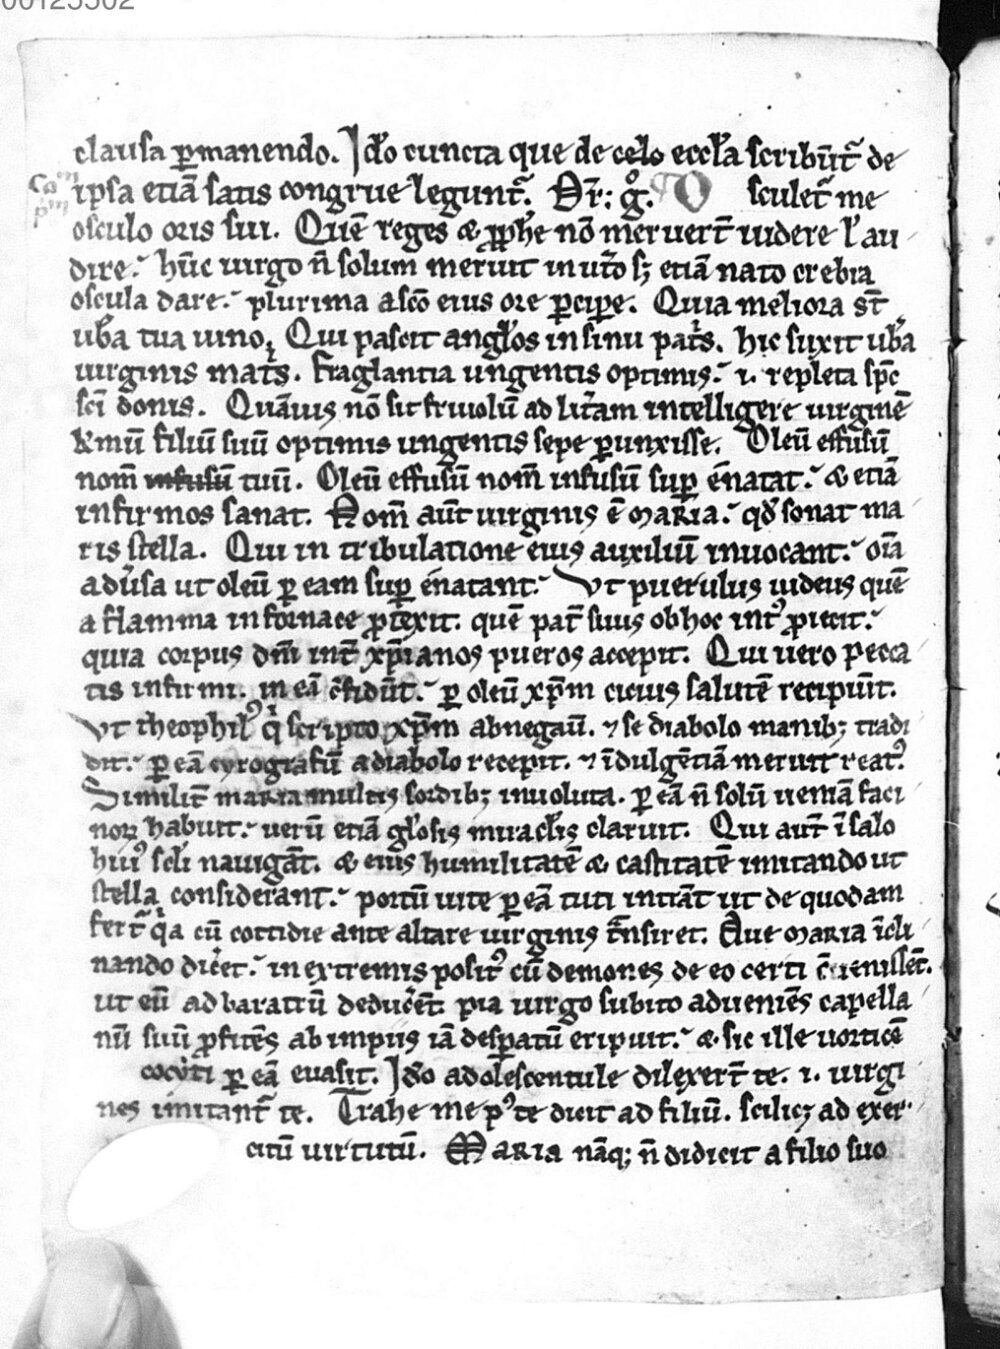 00125502
clausa ꝑmanendo. Ido cuncta que de celo eccła scribūt᷑ de
Cam pm
ipsa etiā satis congrue legunt᷑. Dr̄: g̊. O sculet᷑ me
osculo oris sui. Quē reges & ꝓphe nō meruert̄ uidere ł au
dire. hūc uirgo n̄ solum meruit in ut̄o sꝫ etiā nato crebra
oscula dare. plurima a sc̄o eius ore ꝑcipe. Quia meliora st̄
ubera tua uino. Qui pascit angłos in sinu patris. hic suxit ubera
uirginis matris. fraglantia ungentis optimis. i. repleta sp̄c
sc̄i donis. Quāuis nō sit friuolū ad litt̄am intelligere uirginē
kmū filiū suū optimis ungentis sepe ꝑunxisse. Oleū effusū
nom̄ infusū tuū. Oleū effusū nom̄ infusū suꝑ enatat. & etiā
infirmos sanat. Nom̄ aūt uirginis ē maria. qđ sonat ma
ris stella. Qui in tribulatione eius auxiliū inuocant. oīa
aduersa ut oleū ꝑ eam suꝑ enatant. Vt puerulus iudeus quē
a flamma in fornace ꝓtexit. quē pat̄ suus ob hoc int᷒ ꝓiecit.
quia corpus dn̄i int̄ xp̄ianos pueros accepit. Qui uero pecca
tis infirmi. in eā c̄fidūt. ꝑ oleū xp̄m cicius salutē recipiūt.
Vt theophil᷒ qi scripto xp̄m abnegaū. ⁊ se diabolo manibꝫ tradi
dit. ꝑ eā cyrografū a diabolo recepit. ⁊ īdulgētiā meruit reat᷒.
Similit̄ maria multis sordibꝫ inuoluta. ꝑ eā n̄ solū ueniā faci
noꝝ habuit. uerū etiā głosis miracłis claruit. Qui aut̄ ī salo
hui᷒ scłi nauigāt. & eius humilitatē & castitatē imitando ut
stella considerant. portū uite ꝑ eā tuti intrāt ut de quodam
fert᷑ qa cū cottidie ante altare uirginis t̄nsiret. Aue maria īcli
nando diceret. in extremis posit᷒ cū demones de eo certi c̄uenissēt.
ut eū ad baratrū deducerēt. pia uirgo subito adueniēs capella
nū suū ꝓfitēs ab impiis iā desꝑatū eripuit. & sic ille uorticē
cocyti ꝑ eā euasit. Ido adolescentule dilexert̄ te. i. uirgi
nes imitant᷑ te. Trahe me p᷒ te dicit ad filiū. scilicꝫ ad exer
citū uirtutū. Maria nāqꝫ n̄ didicit a filio suo